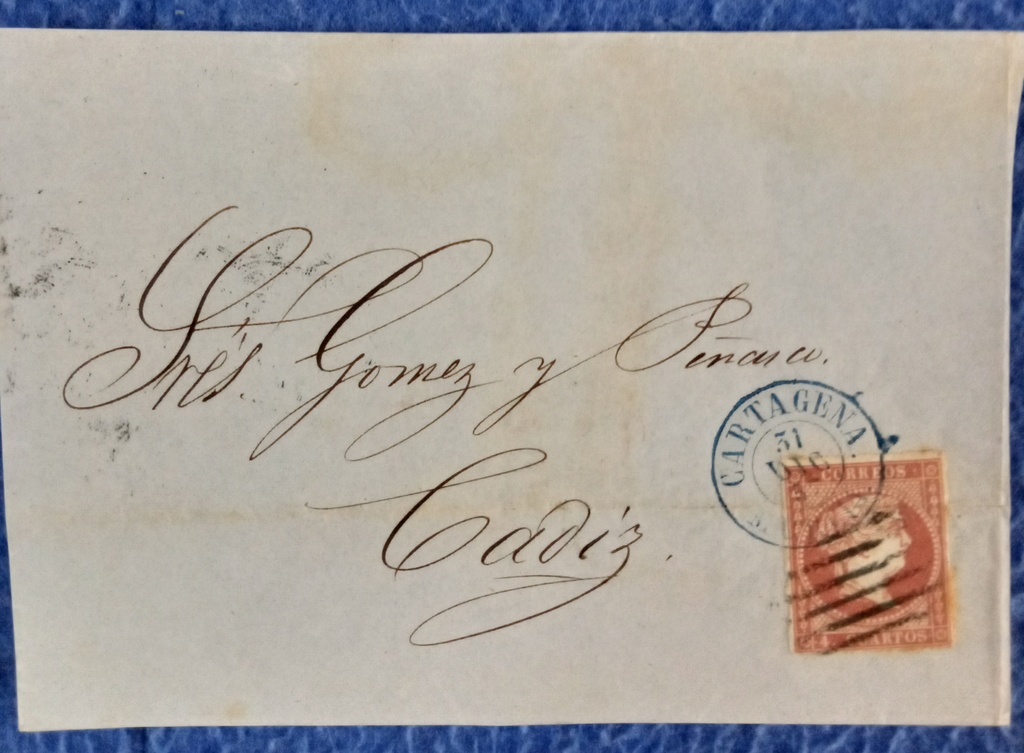 Sres. Gomez y Peñasco.
Cadiz.
CARTAGENA
31
DIC
CORREOS
4 CUARTOS